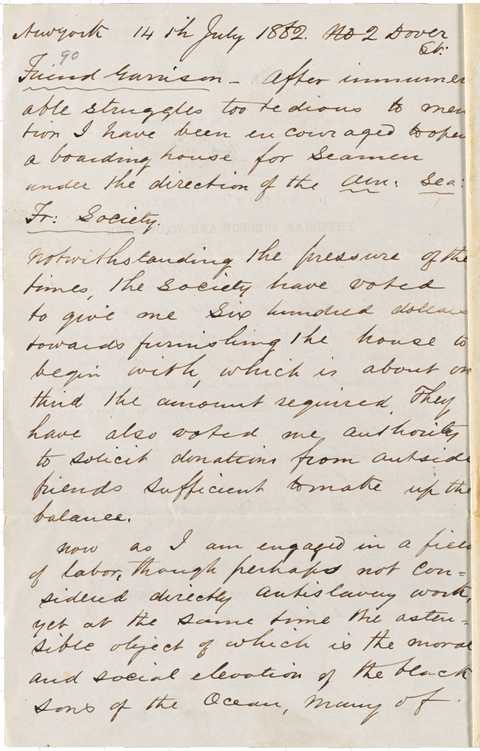 Newyork 14th July 1862. No 2 Dover
St.
90
Friend Garrison – After innumer
able struggles too tedious to men
tion I have been encouraged to open
a boarding house for Seamen
under the direction of the Am: Sea:
Fr: Society.
Notwithstanding the pressure of the
times, the Society have voted
to give me Six hundred dollars
towards furnishing the house to
begin with, which is about on
third the amount required. They
have also voted me, authority
to solicit donations from outside
friends sufficient to make up the
balance.
Now as I am engaged in a field
of labor, though perhaps not con-
sidered directly Antislavery work,
yet at the same time the osten-
sible object of which is the moral
and social elevation of the black
sons of the Ocean, many of